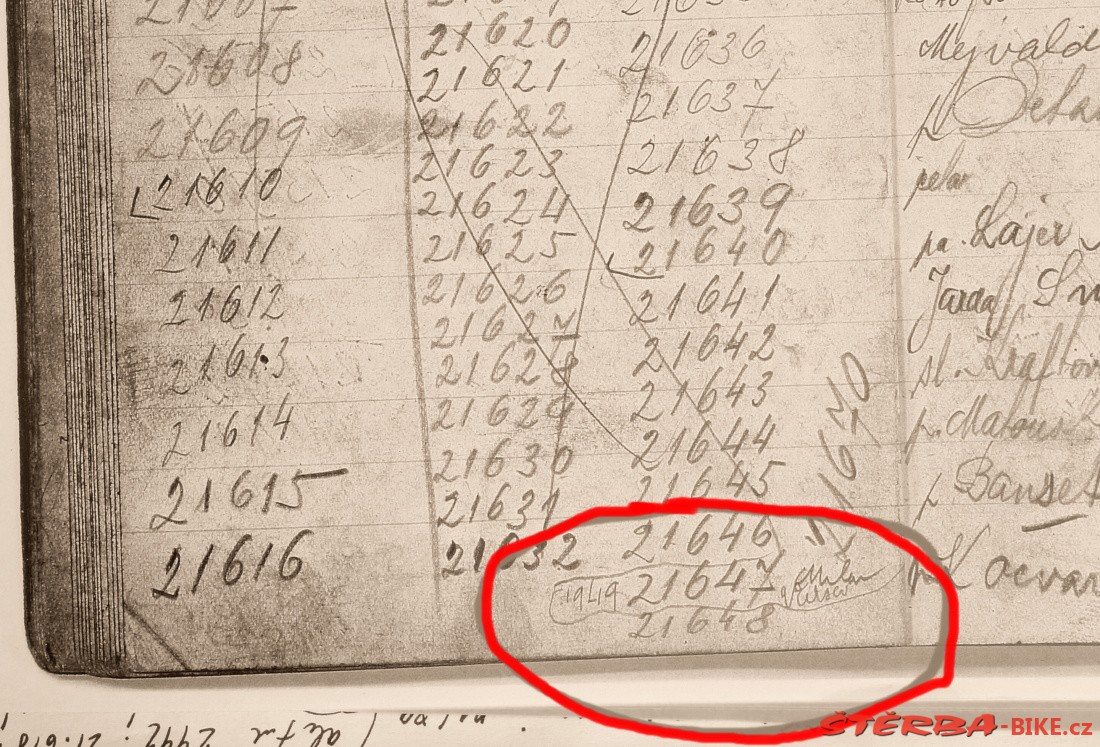 21608
21609
21610
21611
21612
21613
21614
21615
21616
21620
21621
21622
21623
21624
21625
21626
21627
21628
21629
21630
21631
21632
21636
21637
21638
21639
21640
21641
21642
21643
21644
21645
21646
1949 21647 Milan
21648
21670
Mejvald
p
pa. Lájer
Jarda
sl.
p. Matouš
p Banset
Kocvar
ŠTĚRBA-BIKE.cz